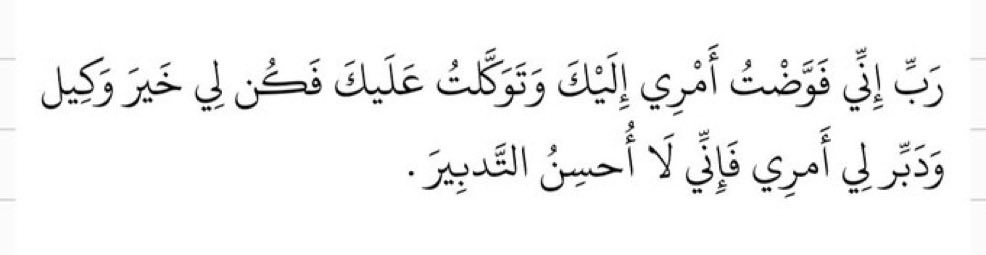 رَبِّ إِنِّي فَوَّضْتُ أَمْرِي إِلَيْكَ وَتَوَكَّلتُ عَلَيكَ فَكُن لِي خَيرَ وَكِيل
وَدَبِّر لِي أَمرِي فَإِنِّي لَا أُحسِنُ التَّدبِيرَ .